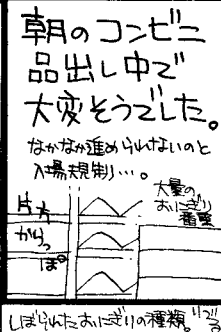 朝のコンビニ
品出し中で
大変そうでした。
なかなか進められないのと
入場規制…。
大量の
おにぎり
番重
片方
からっ
ぽ。
しぼられたおにぎりの種類。